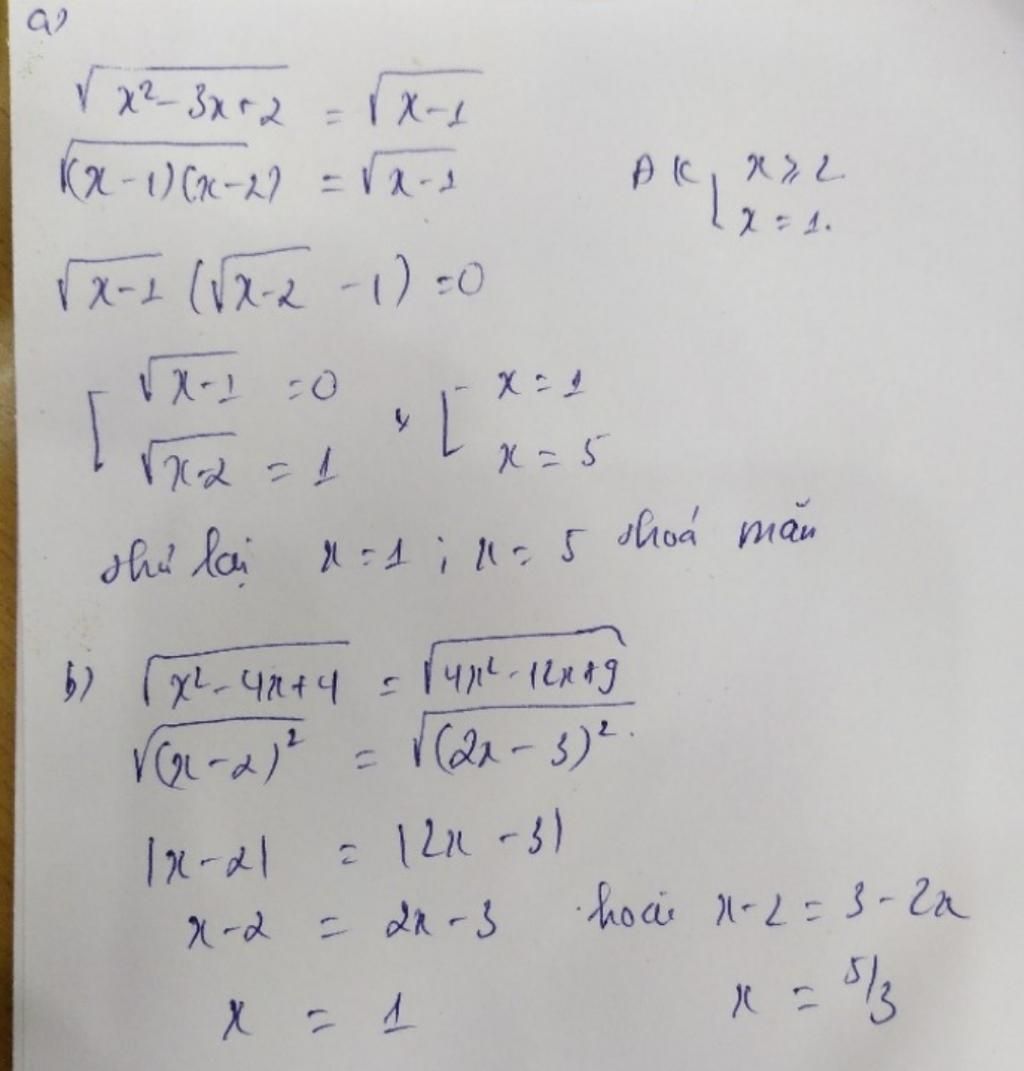 a)
√(x² - 3x + 2) = √(x - 1)
√((x - 1)(x - 2)) = √(x - 1) ĐK [ x ≥ 2
x = 1.
√(x - 1) (√(x - 2) - 1) = 0
[ √(x - 1) = 0 [ x = 1
√(x - 2) = 1 x = 5
thử lại x = 1 ; x = 5 thoả mãn
b) √(x² - 4x + 4) = √(4x² - 12x + 9)
√((x - 2)²) = √((2x - 3)²).
|x - 2| = |2x - 3|
x - 2 = 2x - 3 hoặc x - 2 = 3 - 2x
x = 1 x = 5/3